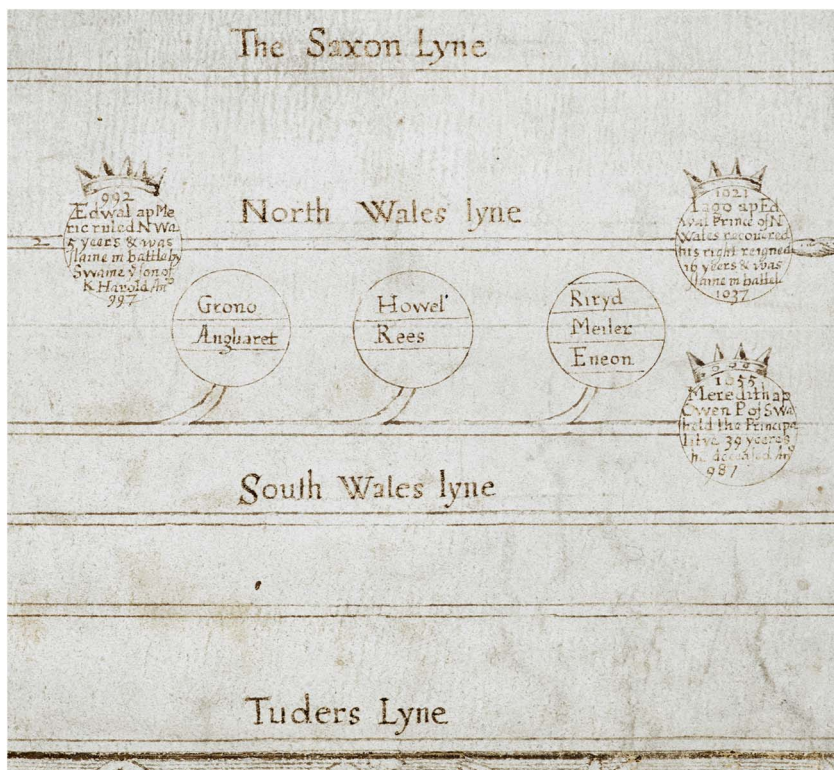 The Saxon Lyne
992
Ædwal ap Me
ric ruled N Wa
5 years & was
slaine in battle by
Swaine ẙ son of
K Harold An̊
997
North Wales lyne
1021
Iago ap Ed
wal Prince of N
Wales recouered
his right reigned
16 years & was
slaine in battel
1037
2
Grono
Angharet
Howel
Rees
Riryd
Meiler
Eneon
1055
Meredith ap
Owen P of S Wa
held the Principa
litye 39 yeeres
he deceased An̊
987
South Wales lyne
Tuders Lyne